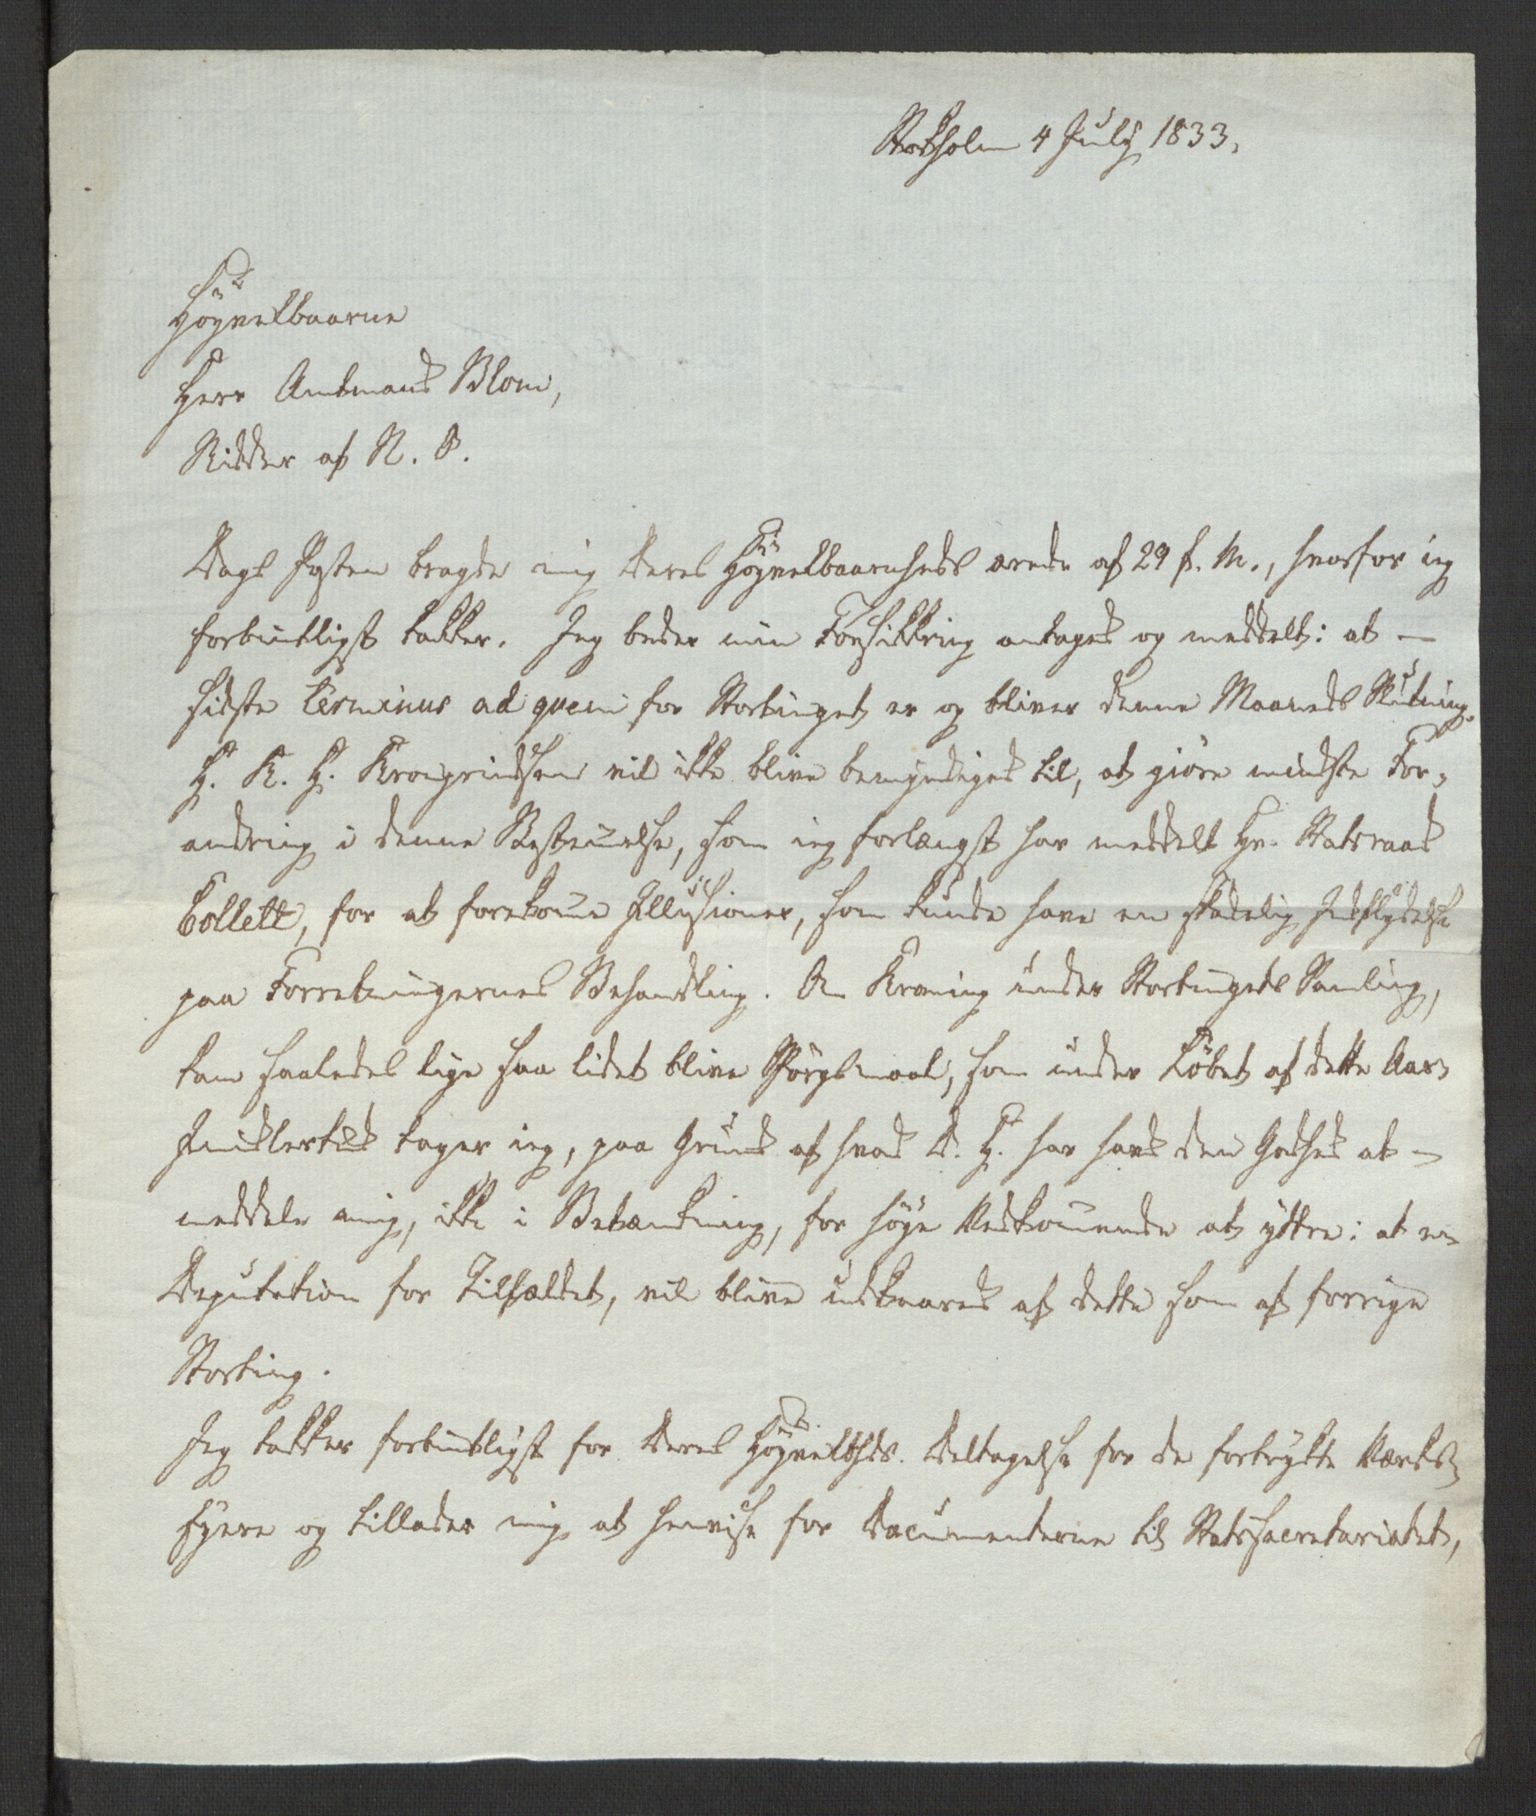 Stokholm 4 July 1833.
Höyvelbaarne
Herr Amtmand Blom,
Ridder af N. O.
Dags Posten bragde mig Deres Höyvelbaarnheds ærede af 29 f. M., hvorfor jeg
forbindtligst takker. Jeg beder min Forsikkring antaget og meddelt: at
sidste terminus ad quem for Stortinget er og bliver denne Maaneds Slutning.
H. K. H. Kronprindsen vil ikke blive bemyndiget til, at giöre mindste For-
andring i denne Bestemelse, som jeg forlængst har meddelt Hr. Statsraad
Collett, for at forekome Illusioner, som kunde have en skadelig Indflydelse
paa Forretningernes Behandling. Om Kroning under Stortingets Samling,
kan saaledes lige saa lidet blive Spörgsmaal, som under Löbet af dette Aar.
Imidlertid tager jeg, paa Grund af hvad D. H. har havd den Godhed at
meddele mig, ikke i Betænkning, for höye Vedkomende at yttre: at en
Deputation for Tilfældet, vil blive udkaaret af dette som af forrige
Storting.
Jeg takker forbindtligst for Deres Höyvelbhds. Deltagelse for de fortrykte Værks-
eyere og tillader mig at henvise for Documenterne til Statssecretariatet,